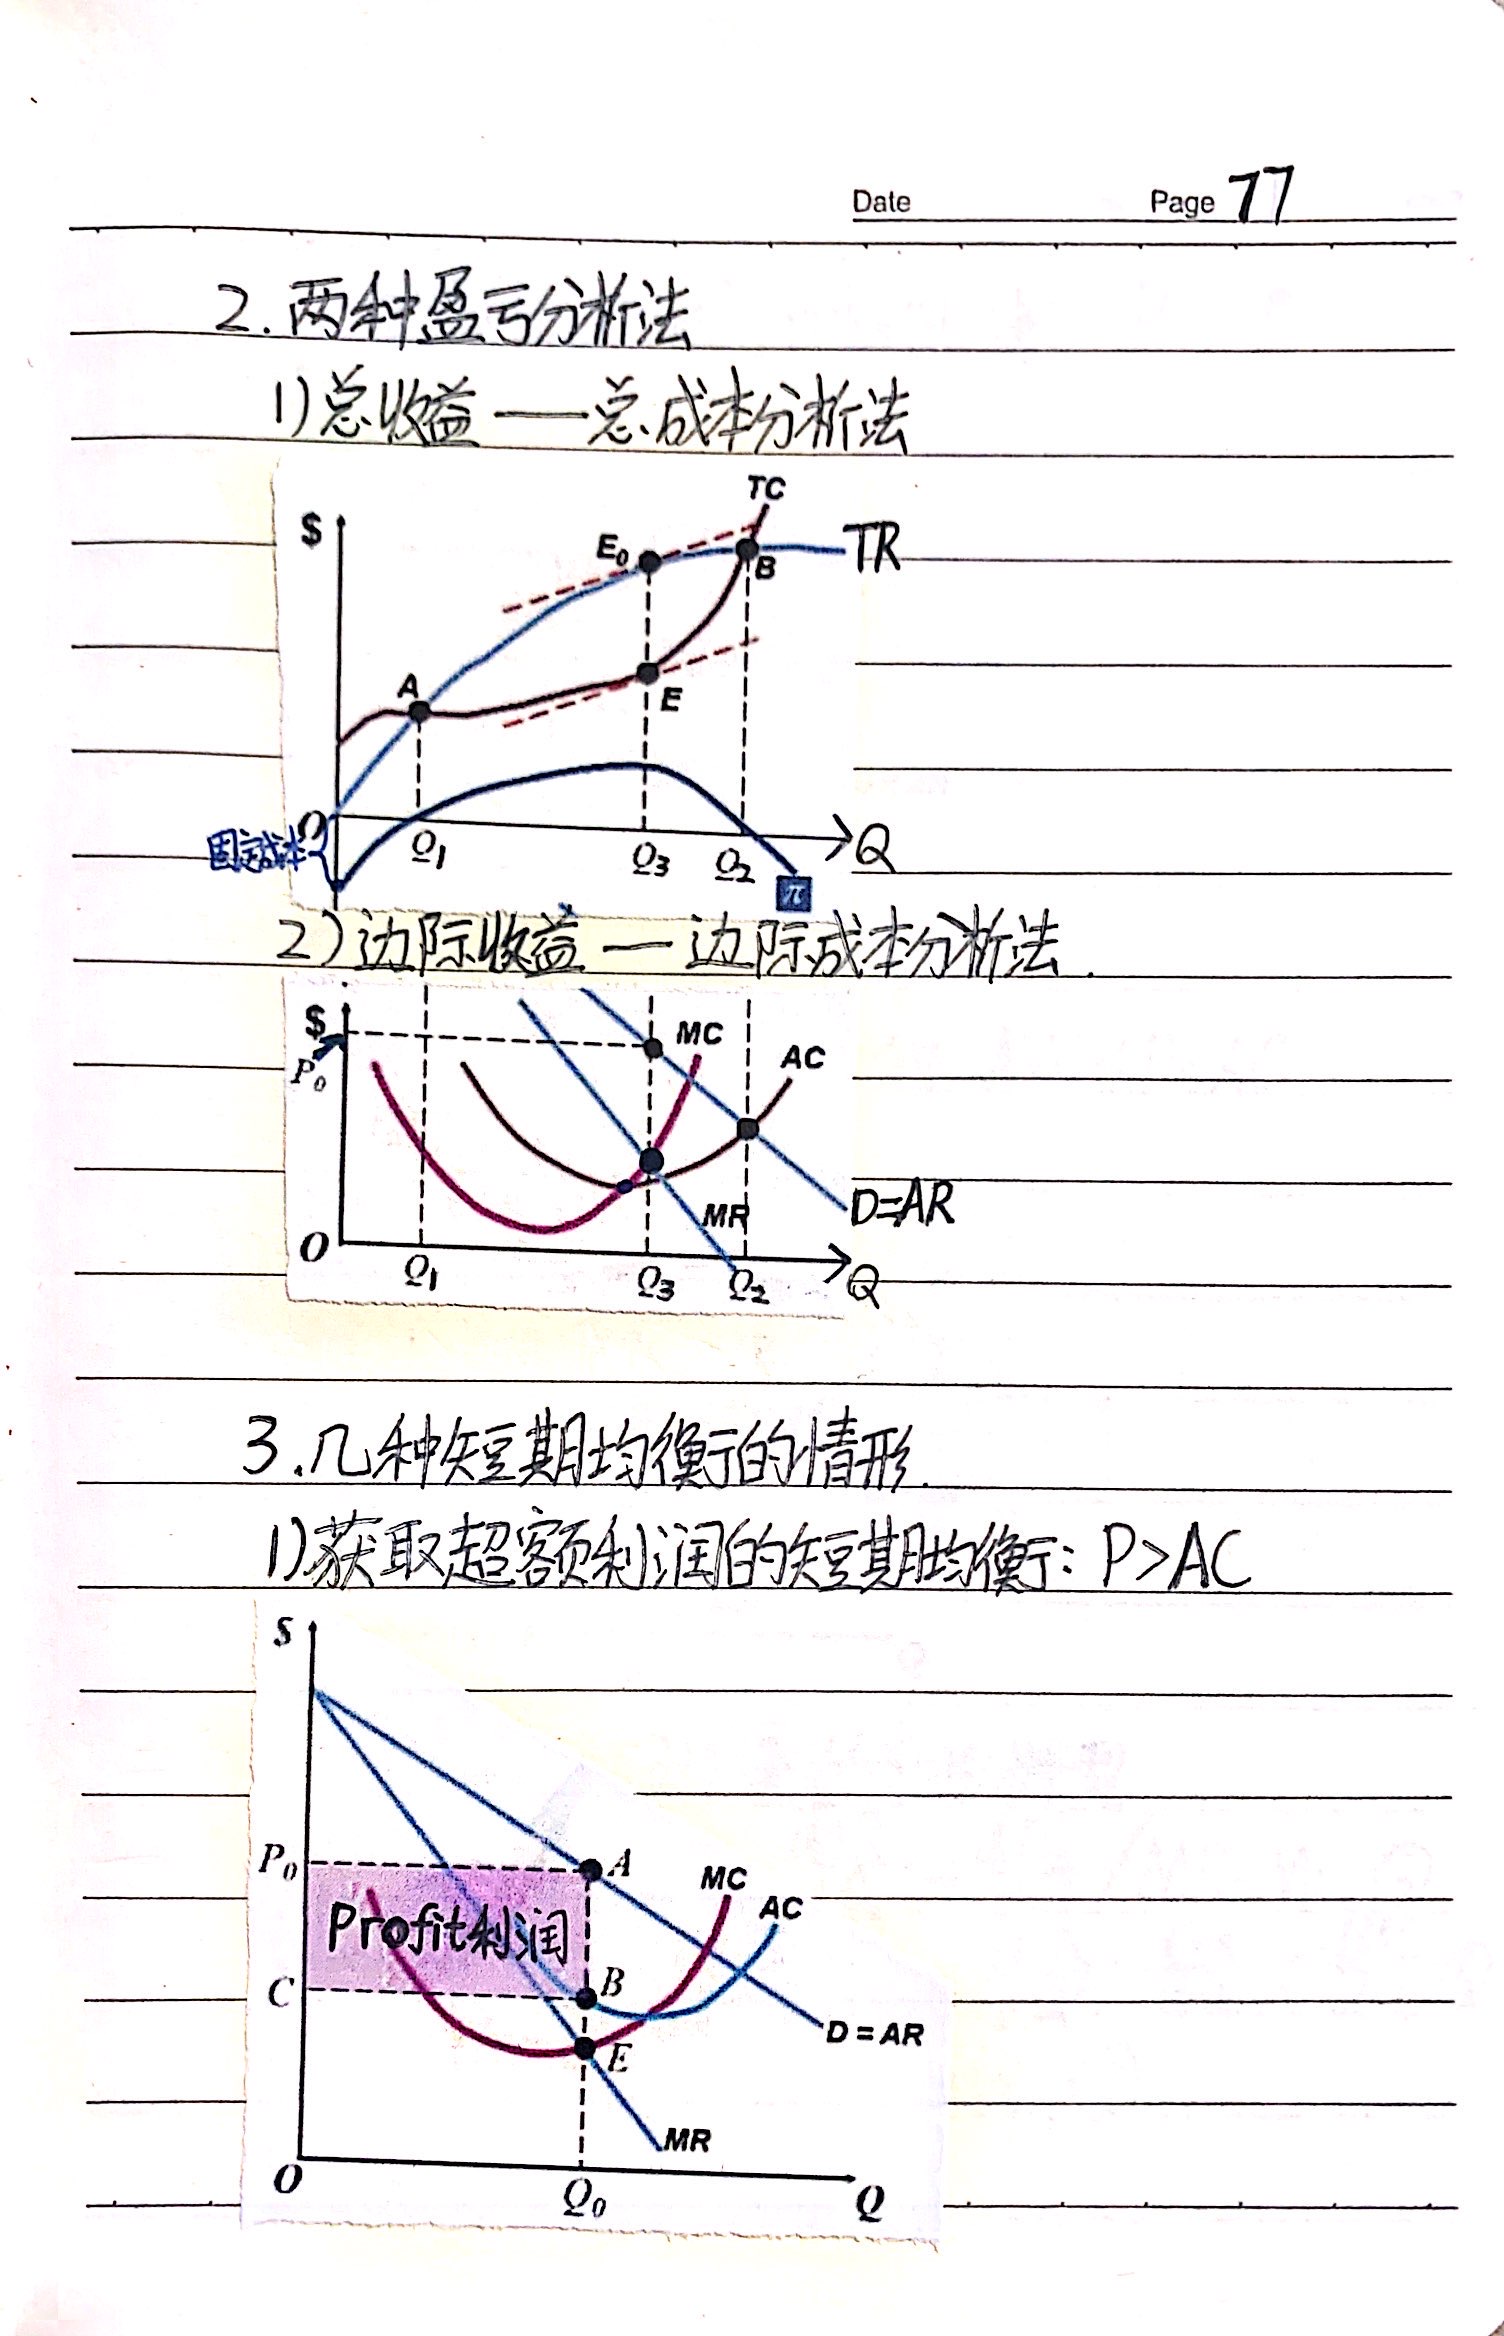 Date Page 77
2. 两种盈亏分析法
1) 总收益——总成本分析法
TC
$ E₀ B TR
A E
O
固定成本
Q₁ Q₃ Q₂ Q
π
2) 边际收益—边际成本分析法.
$ MC
P₀ AC
MR D=AR
O Q₁ Q₃ Q₂ Q
3. 几种短期均衡的情形.
1) 获取超额利润的短期均衡: P>AC
$
P₀ A
MC
Profit利润 AC
C B
D = AR
E
MR
O Q₀ Q